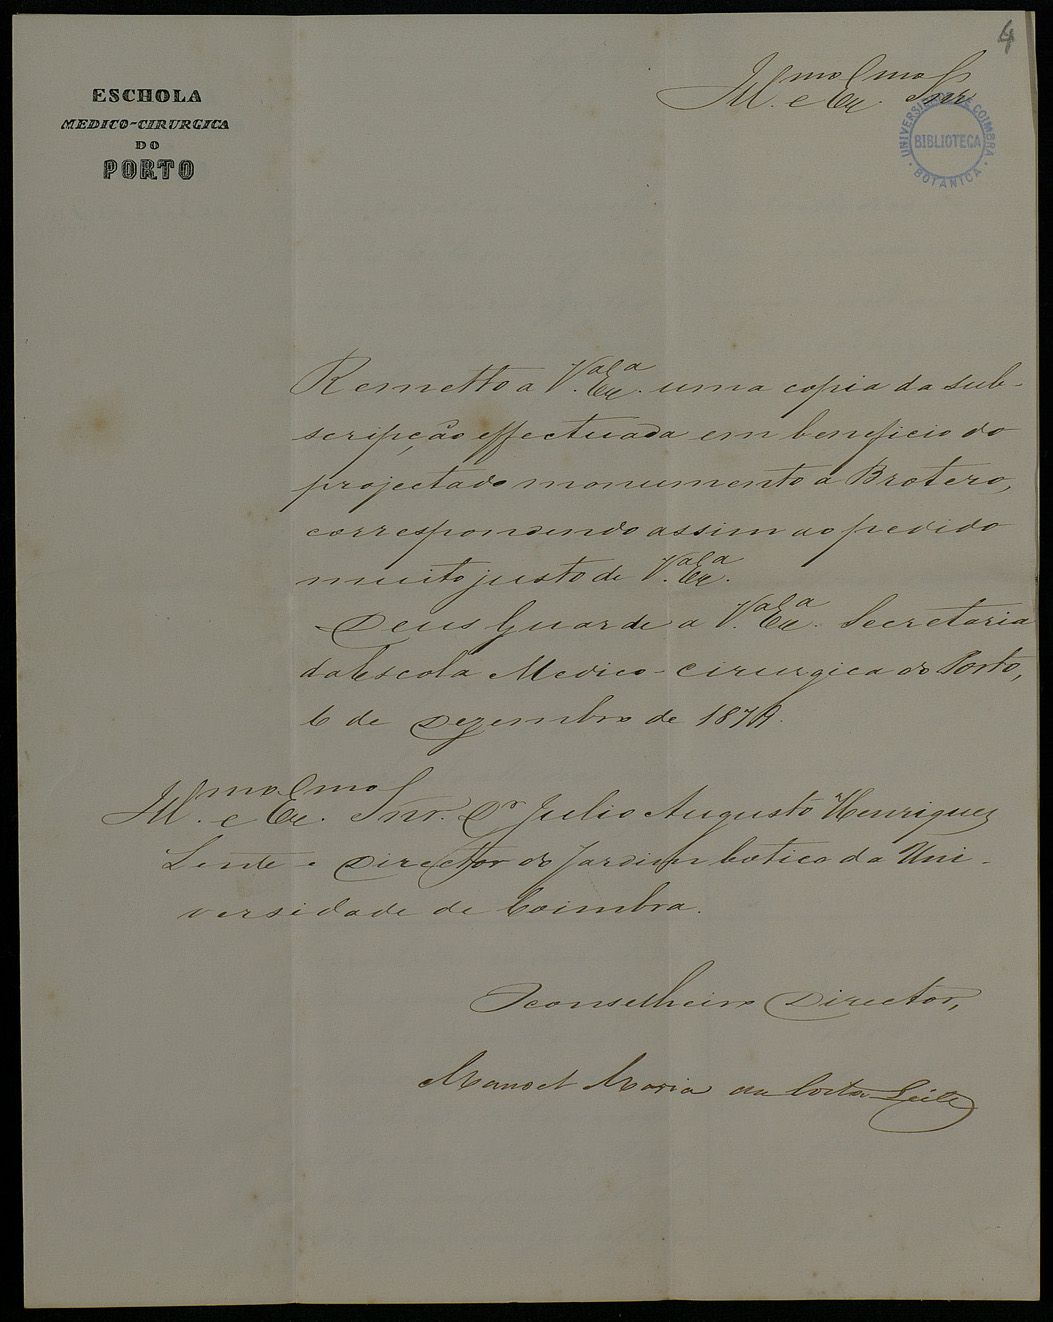 4
Ill.mo e Ex.mo Snr
ESCHOLA
MEDICO-CIRURGICA
DO
PORTO
UNIVERSIDADE DE COIMBRA
BIBLIOTECA
BOTANICA
Remetto a V.a Ex.a uma copia da sub-
scripção effectuada em beneficio do
projectado monumento a Brotero,
correspondendo assim ao pedido
muito justo de V.a Ex.a
Deus Guarde a V.a Ex.a Secretaria
da Escola Medico-cirurgica do Porto,
6 de Dezembro de
Ill.mo e Ex.mo Snr. Dr Julio Augusto Henriques
Lente e Director do Jardim botico da Uni-
versidade de Coimbra.
O conselheiro Director,
Manoel Maria da Costa Leite